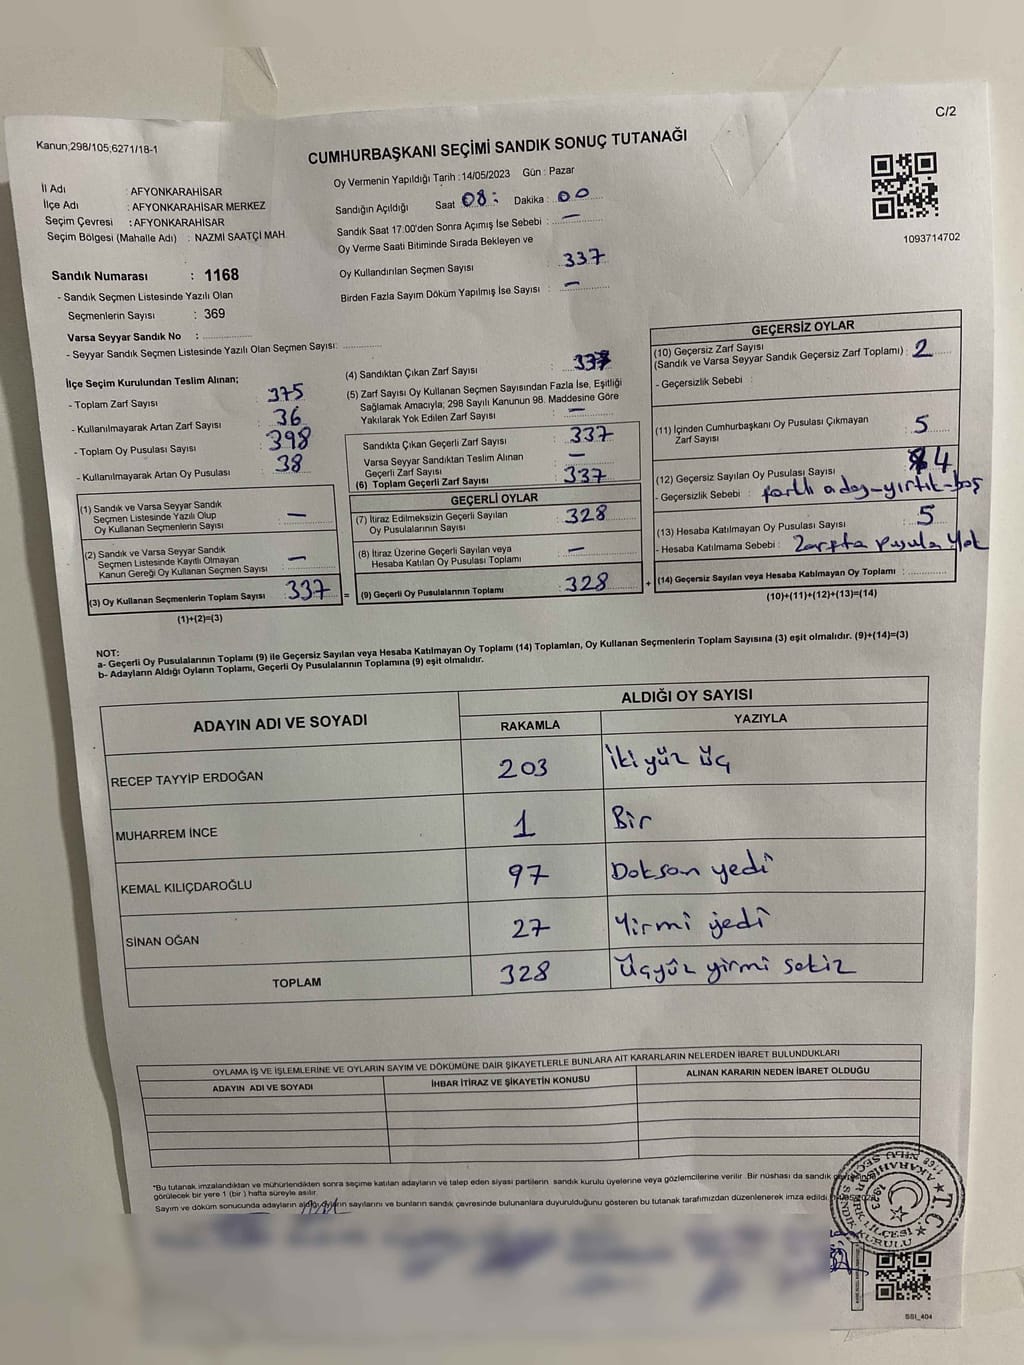 C/2
Kanun;298/105;6271/18-1
CUMHURBAŞKANI SEÇİMİ SANDIK SONUÇ TUTANAĞI
1093714702
İl Adı : AFYONKARAHİSAR
İlçe Adı : AFYONKARAHİSAR MERKEZ
Seçim Çevresi : AFYONKARAHİSAR
Seçim Bölgesi (Mahalle Adı) : NAZMİ SAATÇİ MAH.
Sandık Numarası : 1168
- Sandık Seçmen Listesinde Yazılı Olan
Seçmenlerin Sayısı : 369
Varsa Seyyar Sandık No :
- Seyyar Sandık Seçmen Listesinde Yazılı Olan Seçmen Sayısı:
Oy Vermenin Yapıldığı Tarih : 14/05/2023 Gün : Pazar
Sandığın Açıldığı Saat 08: Dakika : 00
Sandık Saat 17:00'den Sonra Açımış İse Sebebi : —
Oy Verme Saati Bitiminde Sırada Bekleyen ve
Oy Kullandırılan Seçmen Sayısı : 337
Birden Fazla Sayım Döküm Yapılmış İse Sayısı : —
İlçe Seçim Kurulundan Teslim Alınan;
- Toplam Zarf Sayısı : 375
- Kullanılmayarak Artan Zarf Sayısı : 36
- Toplam Oy Pusulası Sayısı : 398
- Kullanılmayarak Artan Oy Pusulası : 38
(1) Sandık ve Varsa Seyyar Sandık
Seçmen Listesinde Yazılı Olup
Oy Kullanan Seçmenlerin Sayısı : —
(2) Sandık ve Varsa Seyyar Sandık
Seçmen Listesinde Kayıtlı Olmayan
Kanun Gereği Oy Kullanan Seçmen Sayısı : —
(3) Oy Kullanan Seçmenlerin Toplam Sayısı : 337 =
(1)+(2)=(3)
(4) Sandıktan Çıkan Zarf Sayısı : 337
(5) Zarf Sayısı Oy Kullanan Seçmen Sayısından Fazla İse, Eşitliği
Sağlamak Amacıyla; 298 Sayılı Kanunun 98. Maddesine Göre
Yakılarak Yok Edilen Zarf Sayısı : —
Sandıkta Çıkan Geçerli Zarf Sayısı : 337
Varsa Seyyar Sandıktan Teslim Alınan
Geçerli Zarf Sayısı : —
(6) Toplam Geçerli Zarf Sayısı : 337
GEÇERLİ OYLAR
(7) İtiraz Edilmeksizin Geçerli Sayılan
Oy Pusulalarının Sayısı : 328
(8) İtiraz Üzerine Geçerli Sayılan veya
Hesaba Katılan Oy Pusulası Toplamı : —
(9) Geçerli Oy Pusulalarının Toplamı : 328 +
GEÇERSİZ OYLAR
(10) Geçersiz Zarf Sayısı
(Sandık ve Varsa Seyyar Sandık Geçersiz Zarf Toplamı) : 2
- Geçersizlik Sebebi :
(11) İçinden Cumhurbaşkanı Oy Pusulası Çıkmayan
Zarf Sayısı : 5
(12) Geçersiz Sayılan Oy Pusulası Sayısı : 4
- Geçersizlik Sebebi : farklı aday-yırtık-boş
(13) Hesaba Katılmayan Oy Pusulası Sayısı : 5
- Hesaba Katılmama Sebebi : Zarfta pusula yok
(14) Geçersiz Sayılan veya Hesaba Katılmayan Oy Toplamı :
(10)+(11)+(12)+(13)=(14)
NOT:
a- Geçerli Oy Pusulalarının Toplamı (9) ile Geçersiz Sayılan veya Hesaba Katılmayan Oy Toplamı (14) Toplamları, Oy Kullanan Seçmenlerin Toplam Sayısına (3) eşit olmalıdır. (9)+(14)=(3)
b- Adayların Aldığı Oyların Toplamı, Geçerli Oy Pusulalarının Toplamına (9) eşit olmalıdır.
ADAYIN ADI VE SOYADI
ALDIĞI OY SAYISI
RAKAMLA YAZIYLA
RECEP TAYYİP ERDOĞAN 203 İki yüz üç
MUHARREM İNCE 1 Bir
KEMAL KILIÇDAROĞLU 97 Doksan yedi
SİNAN OĞAN 27 Yirmi yedi
TOPLAM 328 Üçyüz yirmi sekiz
OYLAMA İŞ VE İŞLEMLERİNE VE OYLARIN SAYIM VE DÖKÜMÜNE DAİR ŞİKAYETLERLE BUNLARA AİT KARARLARIN NELERDEN İBARET BULUNDUKLARI
ADAYIN ADI VE SOYADI İHBAR İTİRAZ VE ŞİKAYETİN KONUSU ALINAN KARARIN NEDEN İBARET OLDUĞU
*Bu tutanak imzalandıktan ve mühürlendikten sonra seçime katılan adayların ve talep eden siyasi partilerin sandık kurulu üyelerine veya gözlemcilerine verilir. Bir nüshası da sandık
görülecek bir yere 1 (bir) hafta süreyle asılır.
Sayım ve döküm sonucunda adayların aldığı oyların sayılarını ve bunların sandık çevresinde bulunanlara duyurulduğunu gösteren bu tutanak tarafımızdan düzenlenerek imza edildi.
T.C.
SSI_404